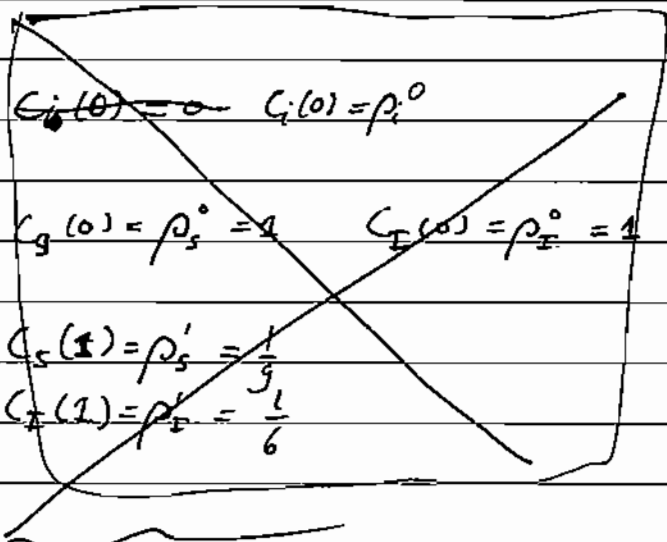 C_i(0) = 0 C_i(0) = ρ_i^0
C_s(0) = ρ_s^0 = 1 C_I(0) = ρ_I^0 = 1
C_s(1) = ρ_s^1 = 1/9
C_I(1) = ρ_I^1 = 1/6